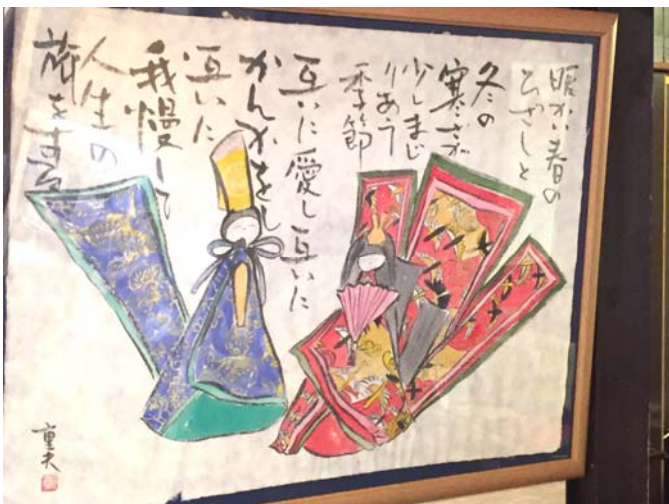 暖かい春の
ひざしと
冬の
寒さが
少しまじ
りあう
季節
互いに愛し互いに
かんかをし
互いに
我慢して
人生の
旅をする
重夫